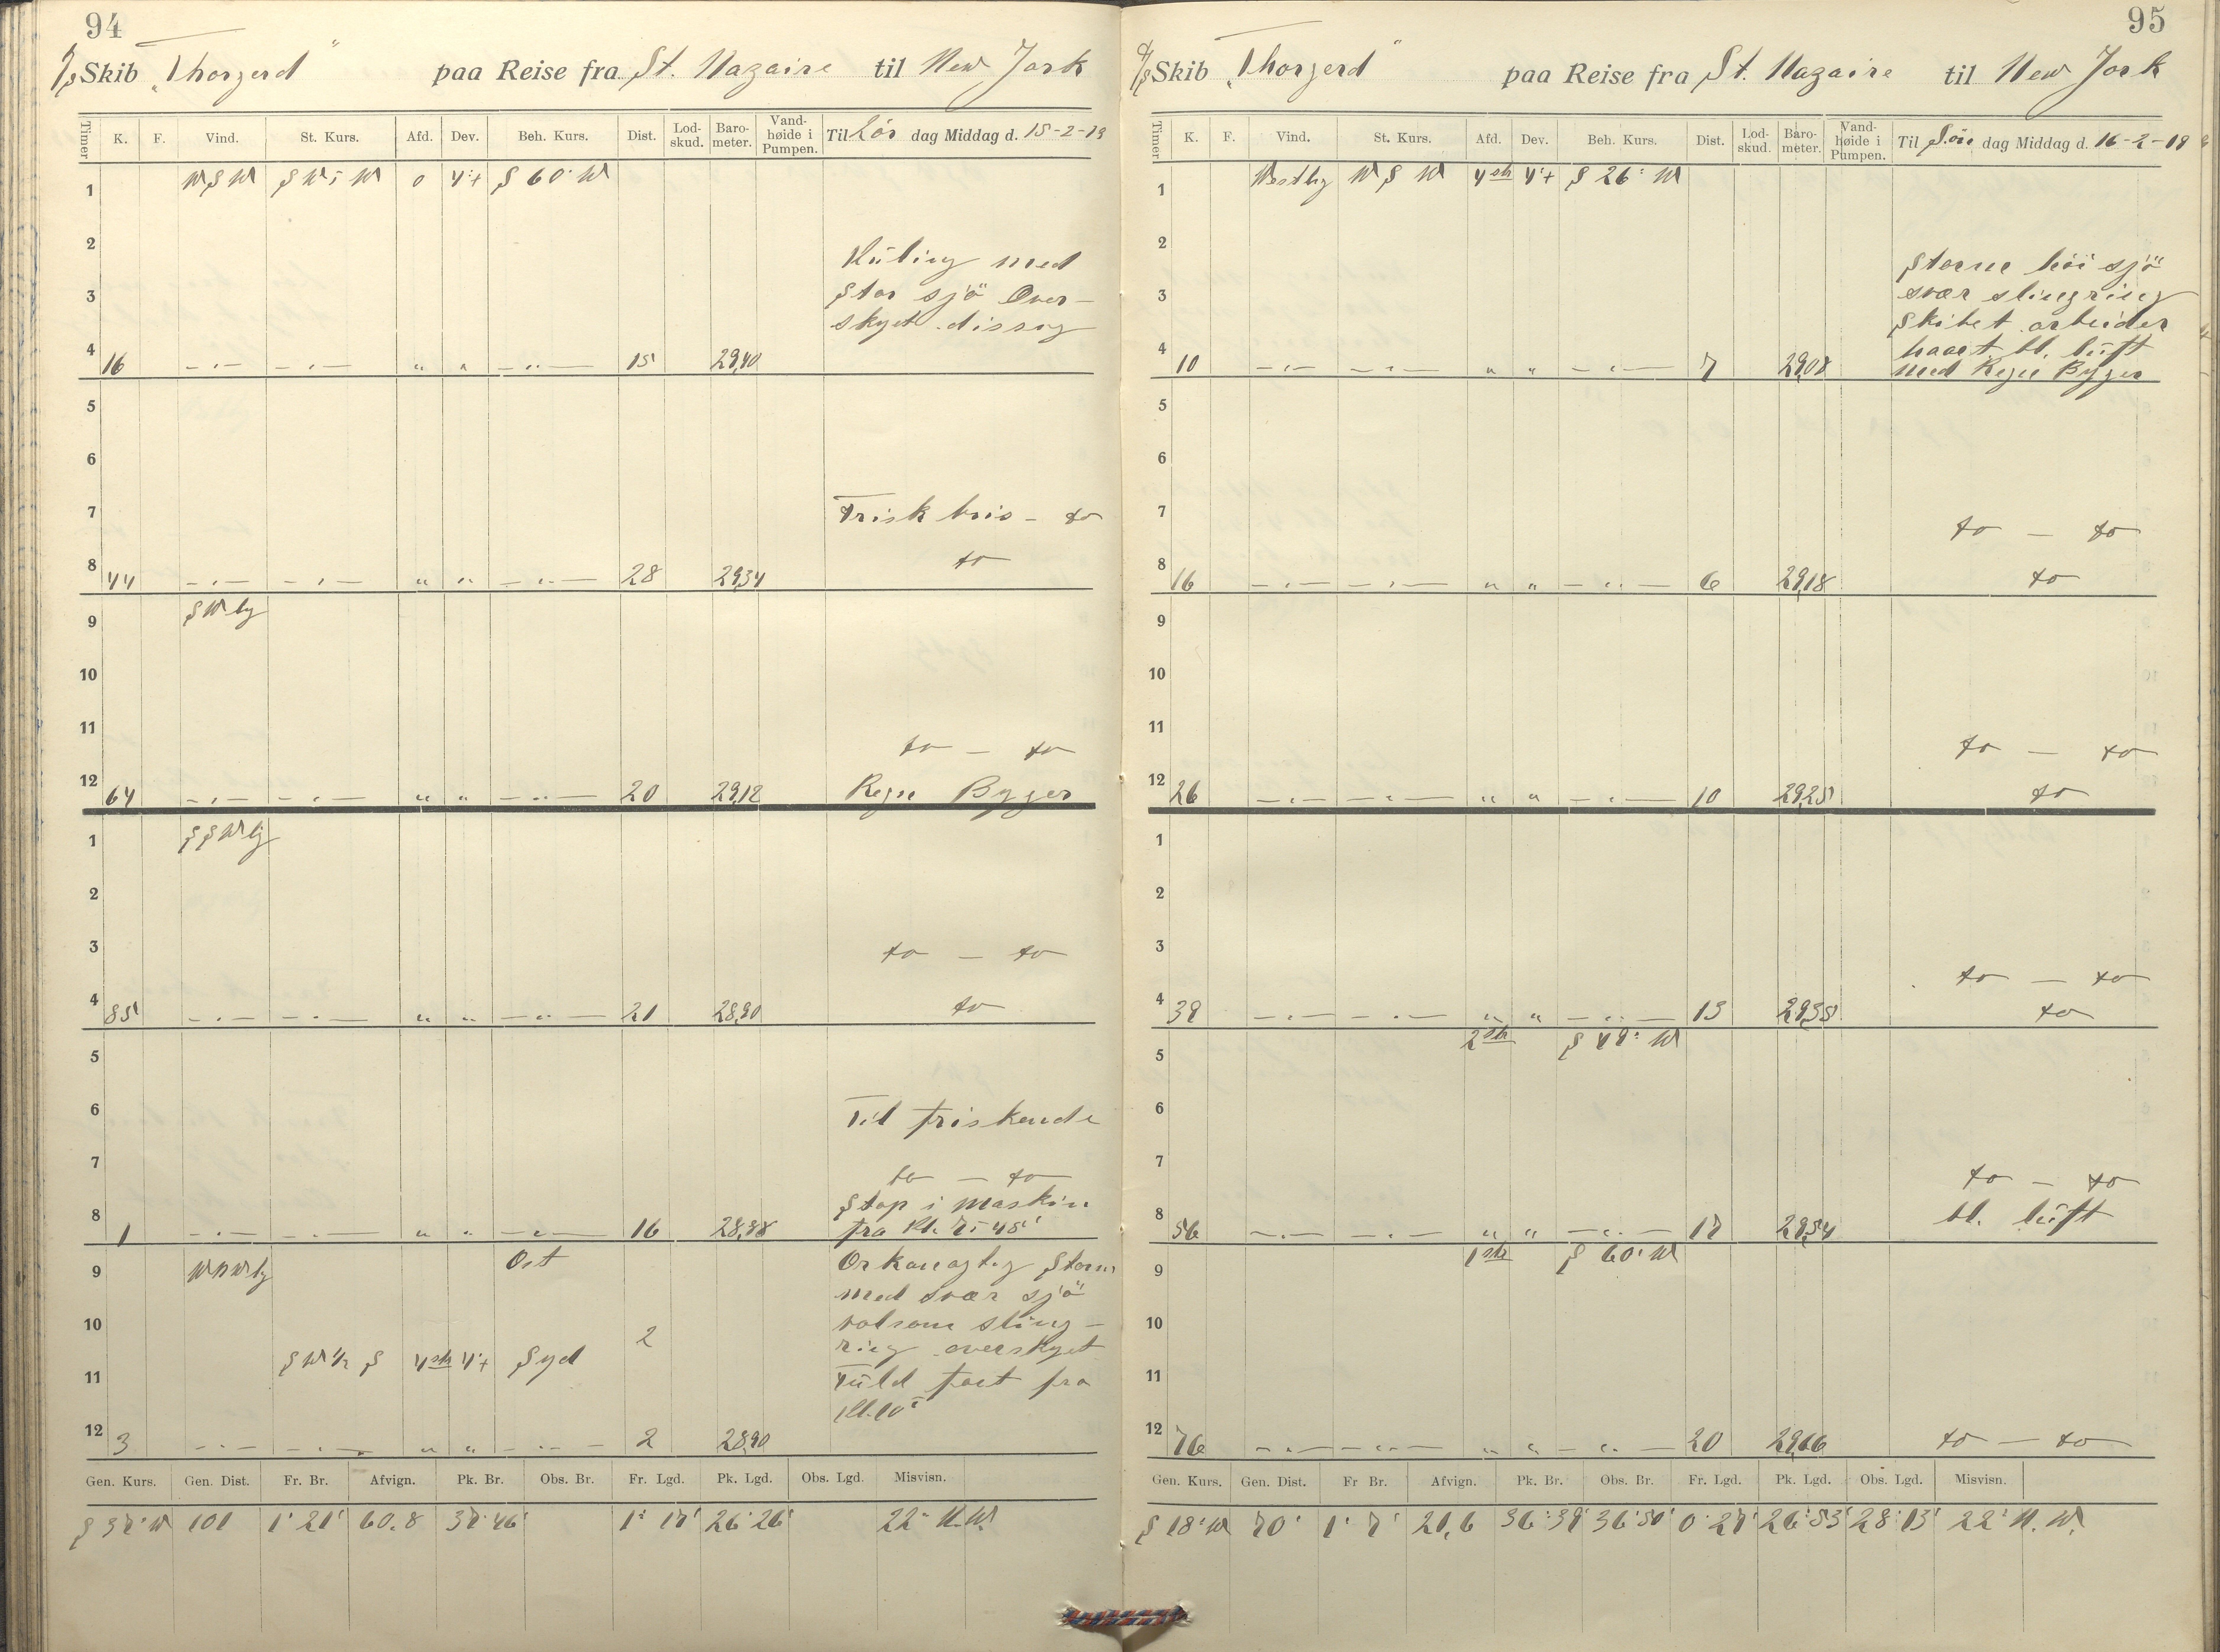 94
S/S Skib "Thorgerd" paa Reise fra St. Nazaire til New York
Timer K. F. Vind. St. Kurs. Afd. Dev. Beh. Kurs. Dist. Lod-skud. Baro-meter. Vand-høide i Pumpen. Til Lör dag Middag d. 15-2-19
1 WSW 0 4°+ S 60° W
2
Kuling med
3 Stor sjö Over-
skyet disig
4 16 -"- -"- " " -"- 15 29,40
5
6
7 Frisk bris - do
8 44 -"- -"- " " -"- 28 29,34 do
9 SWly
10
11 do - do
12 64 -"- -"- " " -"- 20 29,12 Regn Byger
1 SSWly
2
3 do - do
4 85 -"- -"- " " -"- 21 28,90 do
5
6 Til friskende
7 do - do
Stop i Maskin
8 1 -"- -"- " " -"- 16 28,88 fra Kl.
9 WNWly Ost Orkanagtig Storm
med svær sjö
10 2 voldsom sling-
ring overskyet
11 SW 1/2 S 4 str 4°+ Syd Fuld fart fra
Kl. 10
12 3 -"- -"- " " -"- 2 28,90
Gen. Kurs. Gen. Dist. Fr. Br. Afvign. Pk. Br. Obs. Br. Fr. Lgd. Pk. Lgd. Obs. Lgd. Misvisn.
S 37° W 101 1° 21' 60.8 37° 46' 1° 17' 26° 26' 22° N.W.
95
S/S Skib "Thorgerd" paa Reise fra St. Nazaire til New York
Timer K. F. Vind. St. Kurs. Afd. Dev. Beh. Kurs. Dist. Lod-skud. Baro-meter. Vand-høide i Pumpen. Til Sön dag Middag d. 16-2-19
1 Westly WSW 4 str 4°+ S 26° W
2 Storm höi sjö
3 svær slingring
Skibet arbeider
4 haart bl. luft
10 -"- -"- " " -"- 7 29,08 med Regn Byger
5
6
7 do - do
8 16 -"- -"- " " -"- 6 29,18 do
9
10
11 do - do
12 26 -"- -"- " " -"- 10 29,25 do
1
2
3 do - do
4 39 -"- -"- " " -"- 13 29,35 do
2 str S 49° W
5
6
7 do - do
8 56 -"- -"- " " -"- 17 29,54 bl. luft
1 str S 60° W
9
10
11
12 76 -"- -"- " " -"- 20 29,66 do - do
Gen. Kurs. Gen. Dist. Fr Br. Afvign. Pk. Br. Obs. Br. Fr. Lgd. Pk. Lgd. Obs. Lgd. Misvisn.
S 18° W 70' 1° 7' 21,6 36° 39' 36° 50' 0° 27' 26° 53' 28° 13' 22° N. W.